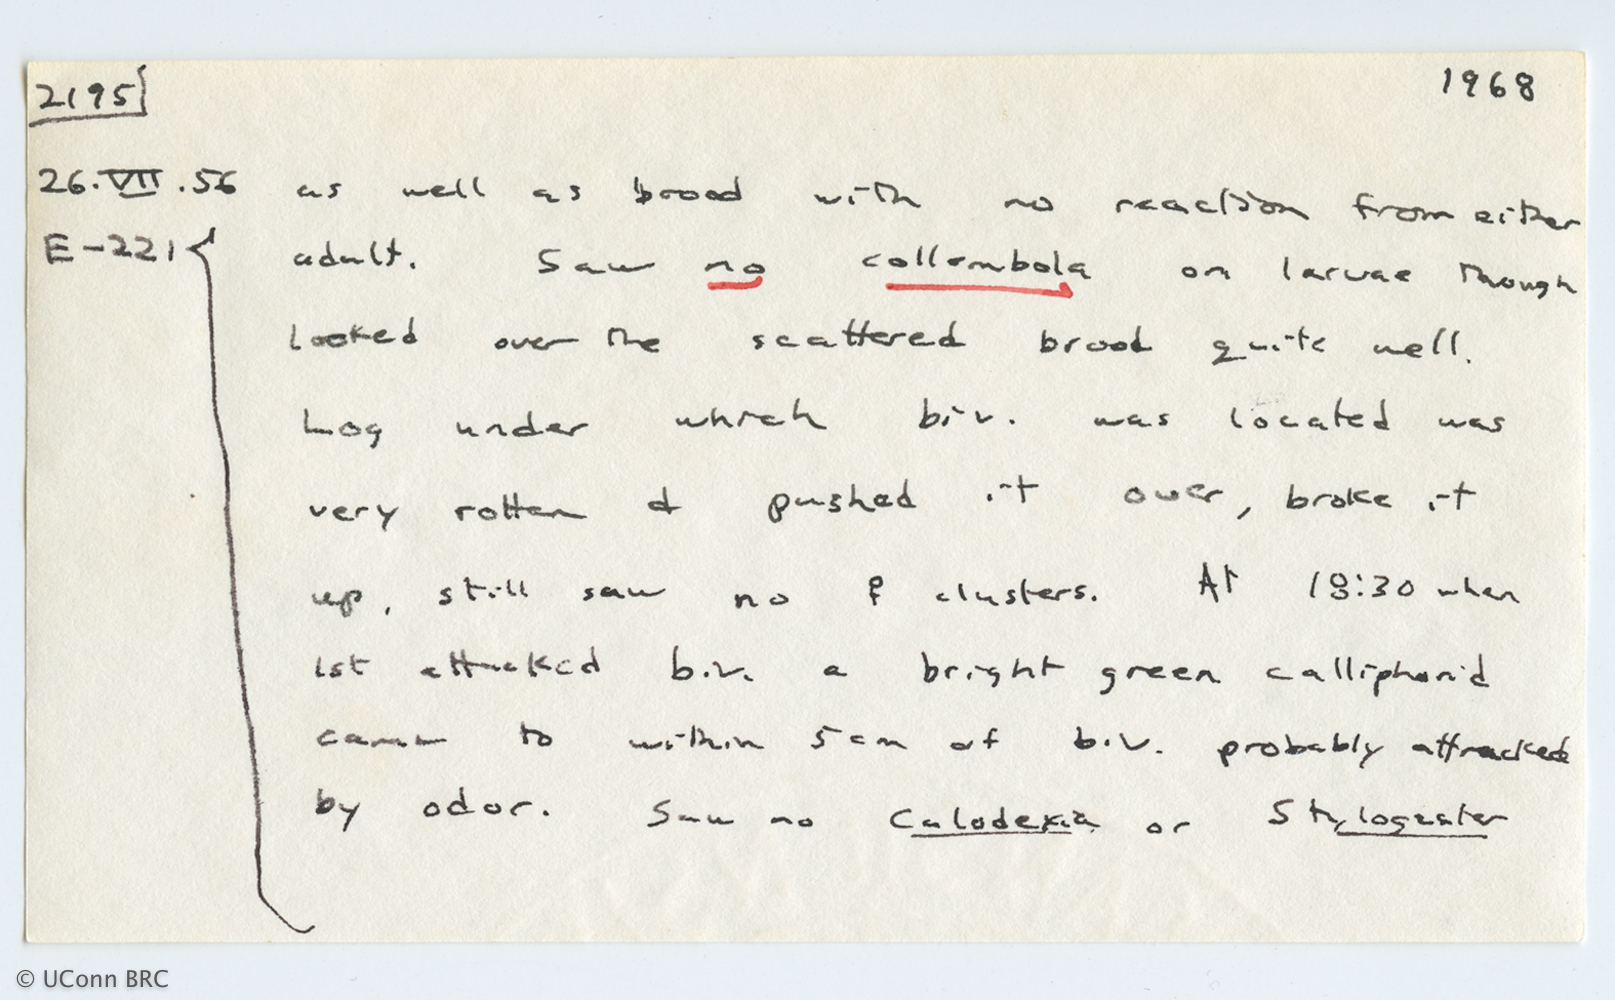 2195 1968
26.VII.56 as well as brood with no reaction from either
E-221 adult. Saw no collembola on larvae though
looked over the scattered brood quite well.
Log under which biv. was located was
very rotten & pushed it over, broke it
up, still saw no clusters. At 18:30 when
1st attacked biv. a bright green calliphorid
came to within 5 cm of biv. probably attracked
by odor. Saw no Calodexia or Stylogaster
© UConn BRC